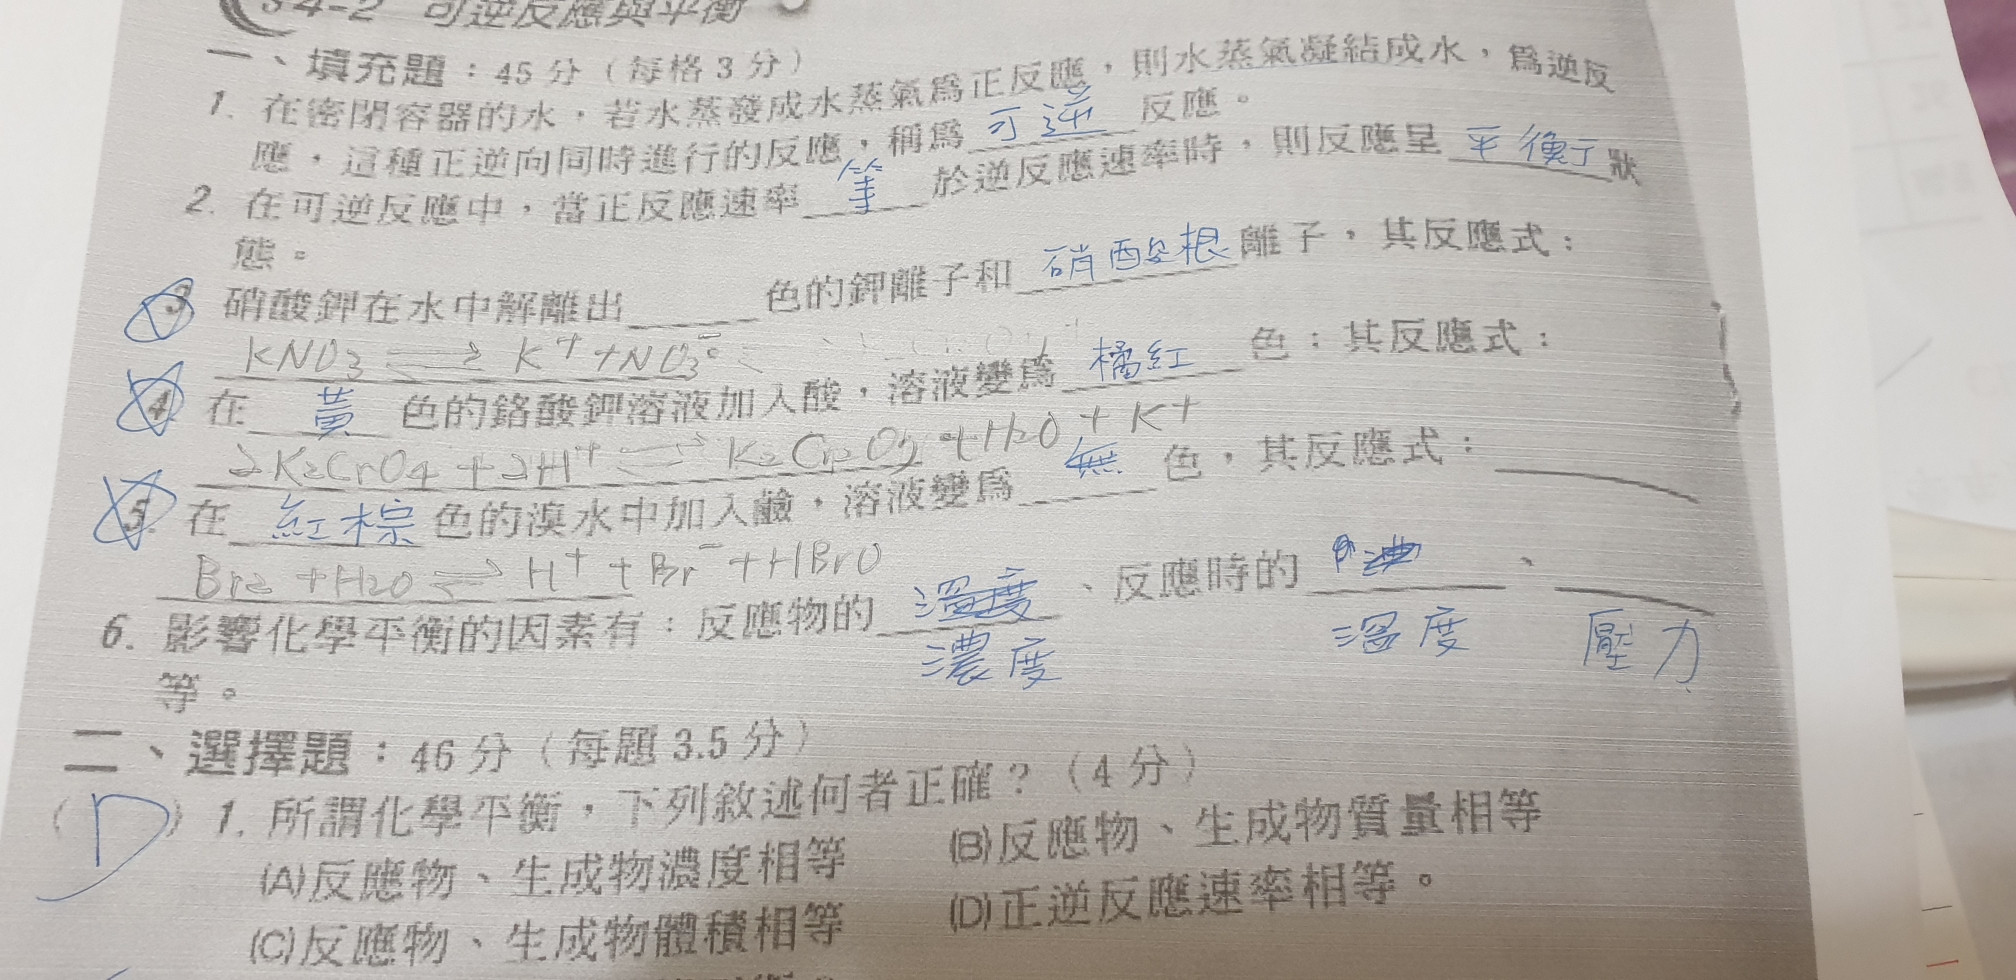 4-2 可逆反應與平衡
一、填充題：45 分（每格 3 分）
1. 在密閉容器的水，若水蒸發成水蒸氣為正反應，則水蒸氣凝結成水，為逆反
應，這種正逆向同時進行的反應，稱為 可逆 反應。
2. 在可逆反應中，當正反應速率 等 於逆反應速率時，則反應呈 平衡 狀
態。
3. 硝酸鉀在水中解離出____色的鉀離子和 硝酸根 離子，其反應式：
KNO3 ⇌ K+ + NO3-。
4. 在 黃 色的鉻酸鉀溶液加入酸，溶液變為 橘紅 色；其反應式：
2K2CrO4 + 2H+ ⇌ K2Cr2O7 + H2O + K+
5. 在 紅棕 色的溴水中加入鹼，溶液變為 無 色，其反應式：____
Br2 + H2O ⇌ H+ + Br- + HBrO
6. 影響化學平衡的因素有：反應物的 溫度 、反應時的____、____
濃度 溫度 壓力
等。
二、選擇題：46 分（每題 3.5 分）
（D）1. 所謂化學平衡，下列敘述何者正確？（4 分）
(A)反應物、生成物濃度相等 (B)反應物、生成物質量相等
(C)反應物、生成物體積相等 (D)正逆反應速率相等。